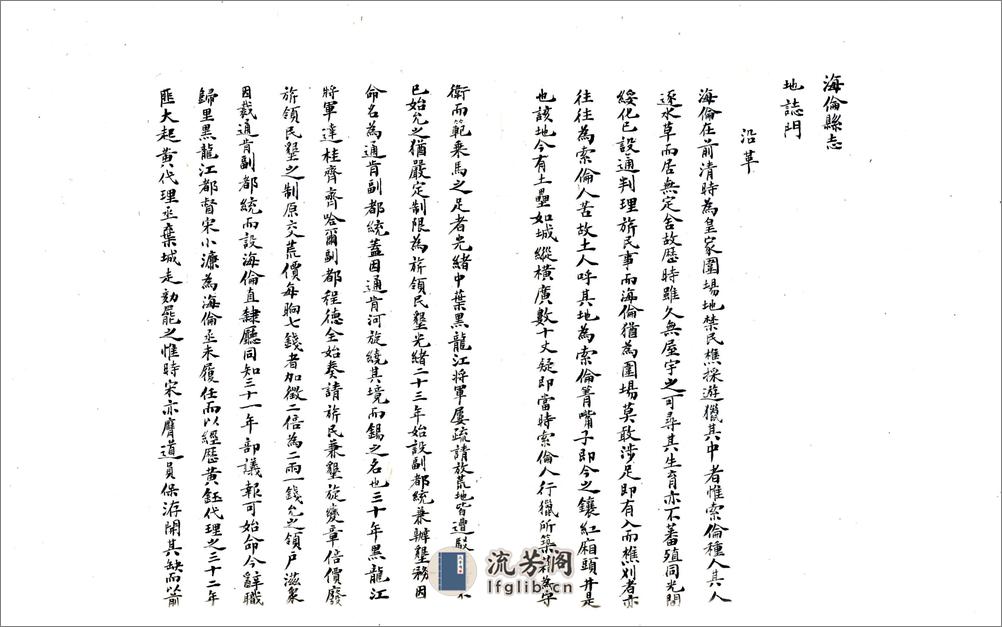 海倫縣志
地誌門
沿革
海倫在前清時為皇家圍場地禁民樵採遊獵其中者惟索倫種人其人
逐水草而居無定舍故歷時雖久無屋宇之可尋其生育亦不蕃殖同光間
綏化已設通判理旂民事而海倫猶為圍場莫敢涉足即有入而樵刈者亦
往往為索倫人苦故土人呼其地為索倫菁嘴子即今之鑲紅廂頭井是
也該地今有土壘如城縱橫廣數十丈疑即當時索倫人行獵所築
衛而範乘馬之足者光緒中葉黑龍江將軍屢疏請放荒地皆遭駁
已始允之猶嚴定制限為旂領民墾光緒二十三年始設副都統兼辦墾務因
命名為通肯副都統蓋因通肯河旋繞其境而錫之名也三十年黑龍江
將軍達桂齊齊哈爾副都程德全始奏請旂民兼墾旋變章倍價廢
旂領民墾之制原交荒價每晌七錢者加徵二倍為二兩一錢允之領戶滋衆
因裁通肯副都統而設海倫直隸廳同知三十一年部議報可始命今辭職
歸里黑龍江都督宋小濂為海倫丞未履任而以經歷黃鈺代理之三十二年
匪大起黃代理丞棄城走劾罷之惟時宋亦膺道員保洊開其缺而以前
流芳閣
lfglib.cn